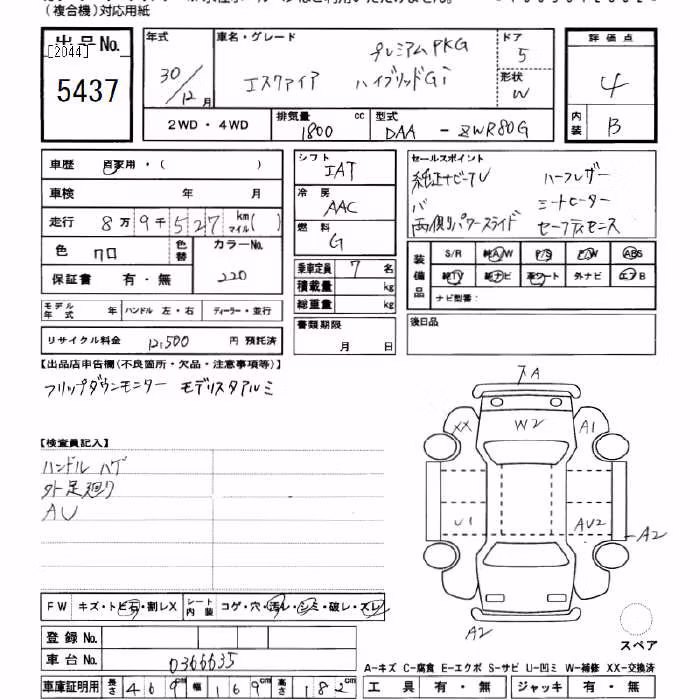 (複合機)対応用紙
出品No.
[2044]
5437
年式
30/12月
車名・グレード
プレミアムPKG
エスクァイア ハイブリッドGi
ドア
5
形状
W
評価点
4
内装
B
2WD・4WD
排気量
1800 cc
型式
DAA - ZWR80G
車歴 自家用・( )
車検 年 月
走行 8万9千527 km マイル( )
色 クロ
色替
カラーNo.
220
保証書 有・無
モデル年式 年
ハンドル 左・右
ディーラー・並行
リサイクル料金 12,500 円 預託済
シフト
IAT
冷房
AAC
燃料
G
乗車定員 7 名
積載量 kg
総重量 kg
書類期限
月 日
セールスポイント
純正ナビ-TV ハーフレザー
バ シートヒーター
両側パワースライド セーフティセンス
装備品
S/R 純A/W P/S P/W ABS
純TV 純ナビ 革シート 外ナビ エアB
ナビ型番:
後日品
【出品店申告欄(不良箇所・欠品・注意事項等)】
フリップダウンモニター モデリスタアルミ
【検査員記入】
ハンドル ハゲ
外 足廻り
AU
7A
XX
W2
A1
U1
AU2
A2
A2
スペア
FW キズ・トビ石・割レX
シート内装 コゲ・穴・汚レ・シミ・破レ・スレ
登録No.
車台No. 0366635
車庫証明用 長さ 469cm 幅 169cm 高さ 182cm
A-キズ C-腐食 E-エクボ S-サビ U-凹ミ W-補修 XX-交換済
工具 有・無 ジャッキ 有・無